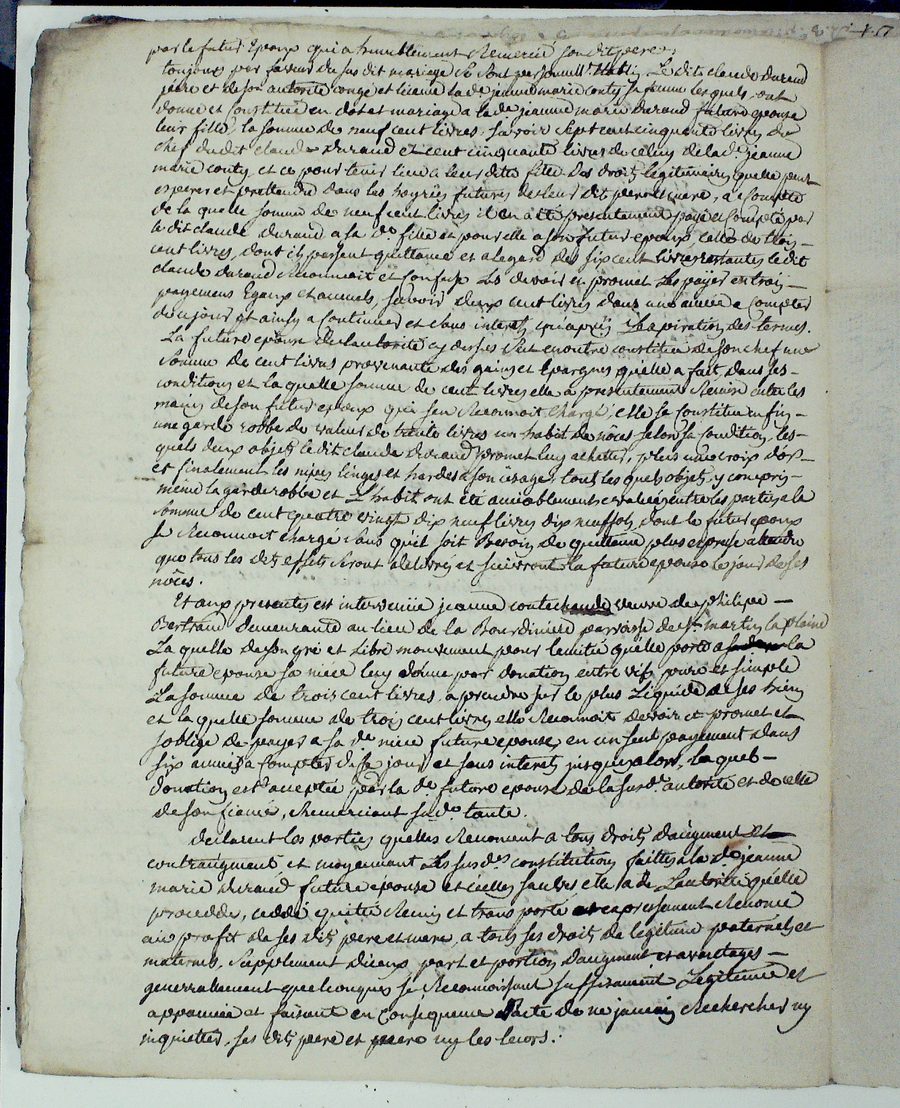 par le futur Epoux qui a humblement Remercié son dit pere,
toujours par faveur du sus dit mariage se sont personnellt. Etablis Le dit claude durand
pere et de son autorité congé et licence la de. jeanne marie conty sa femme lesquels ont
donné et constitué en dot et mariage a la de. jeanne marie durand future epouse
leur fille, la somme de neuf cent livres, savoir sept cent cinquante livres du
chef du dit claude durand et cent cinquante livres de celuy de lad. jeanne
marie conty, et ce pour tenir lieu a leur dite fille des droits legitimaires quelle peut
esperer et prettendre dans les hoyries futures de leur dit pere et mere, a compte
de la quelle somme de neuf cent livres il en a été presentement payé et compté par
le dit claude durand a sa de. fille et pour elle a son futur epoux, celle de trois
cent livres, dont ils passent quittance et a legard des six cent livres restantes le dit
claude durand Reconnait et confesse les devoir et promet les payer en trois
payemens Egaux et annuels, savoir deux cent livres dans une année a compter
de ce jour et ainsy a continuer et sans interets qu'après l'expiration des termes.
La future epouse de l'autorité cy dessus s'est en outre constituée de son chef une
somme de cent livres provenante des gains et Epargnes quelle a fait dans ses
conditions et la quelle somme de cent livres elle a presentement Remise entre les
mains de son futur epoux qui s'en Reconnoit chargé; elle se constitue enfin
une garde robbe de valeur de trente livres un habit de nôces selon sa condition, les
quels deux objets le dit claude durand promet luy acheter, plus une croix d'or
et finalement les nipes linges et hardes a son usage, tout les quels objets, y compris
même la garde robbe et l'habit ont été amiablement evalués entre les parties a la
somme de cent quatre vingt dix neuf livres dix neuf sols, dont le futur epoux
se Reconnoit chargé sans qu'il soit Besoin de quittance plus expresse attendu
que tous les dits effets seront delivrés et suivront la future epouse le jour de ses
nôces.
Et aux presentes est intervenüe jeanne conte veuve de philipe
Bertrand demeurante au lieu de la Bourdiniere parroisse de St. martin la plaine
La quelle de son gré et libre mouvement pour lamitié qu'elle porte a la
future epouse sa niece luy donne par donation entre vifs pure et simple
La somme de trois cent livres, a prendre sur le plus liquide de ses biens
et la quelle somme de trois cent livres elle Reconnoit devoir et promet et
s'oblige de payer a sa de. niece future epouse, en un seul payement dans
six années a compter de ce jour et sans interets jusqu'alors, la quelle
donation est acceptée par la de. future epouse de la susd. autorité et de celle
de son fiancé, Remerciant sad. tante.
Declarent les parties quelles Renoncent a tous droits d'augment et
contraugment et moyennant les susd. constitutions faites a la de. jeanne
marie durand future epouse et icelles sauves elle a de l'autorité quelle
procedde, ceddé quitté Remis et transporté et expressement Renoncé
au profit de ses dits pere et mere, a tous ses droits de legitime paternels et
maternels, supplement diceux part et portion d'augment et avantages
generallement quelconques se Reconnoissant suffisament Legitimée et
appanée et faisant en consequence Pacte de ne jamais Rechercher ny
inquietter, ses dits pere et mere ny les leurs.